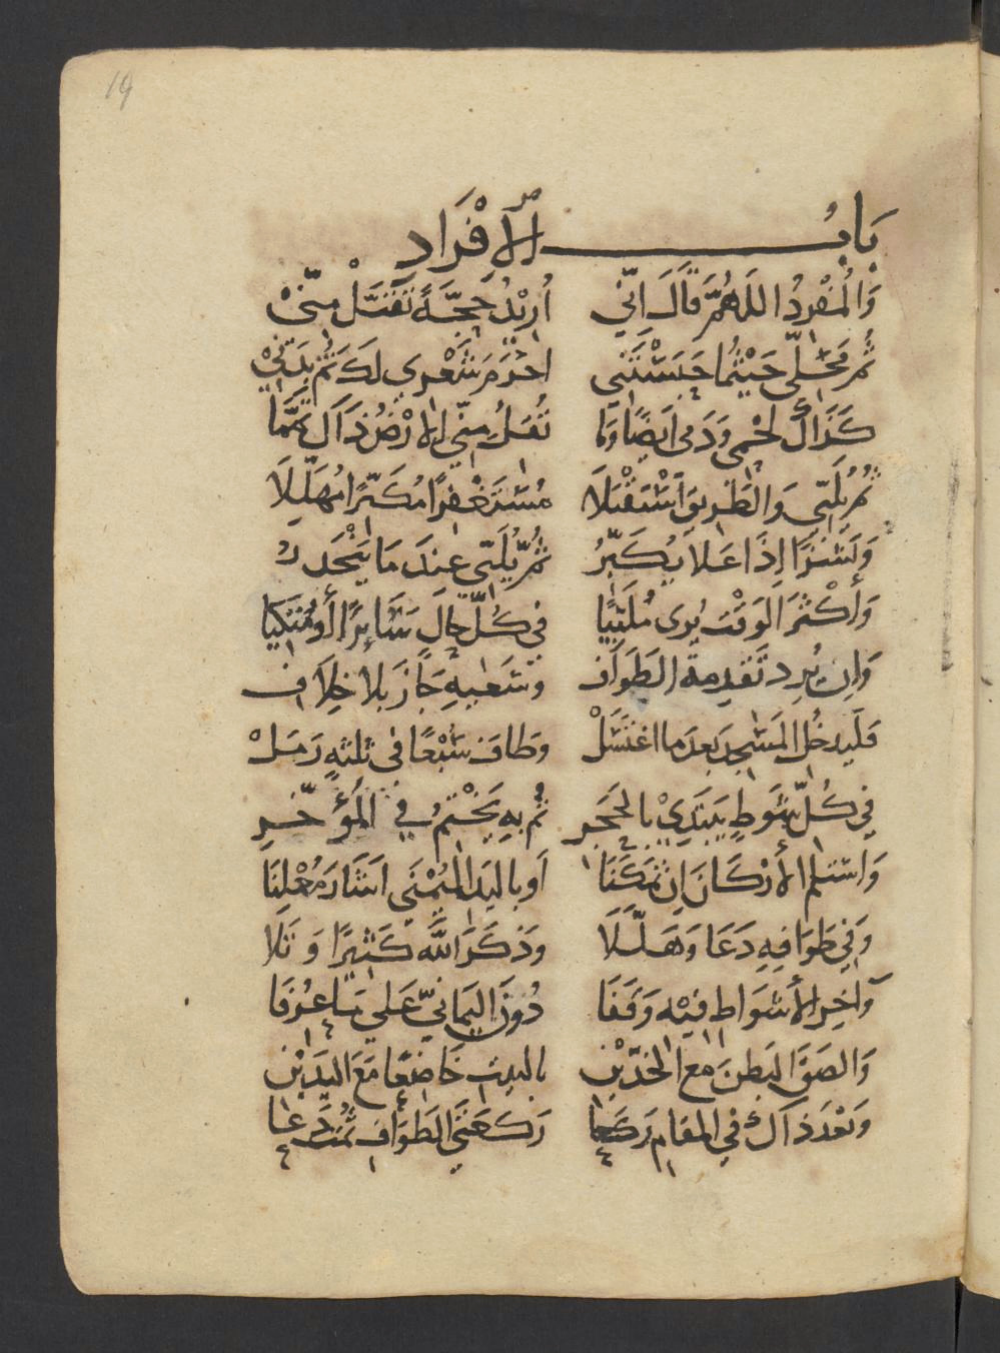 19
بَابُ الْإِفْرَادِ
وَالْمُفْرِدُ اللَهُمَّ قَالَ اِنّي اُرِيْدُ حَجَّةً تَقَبَّلْ مِنّيْ
ثُمَّ مَحَلّي حَيْثُمَا حَبَسْتَنِي احْرَمَ شَعْرِي لَكَ ثُمَّ بَدَنِيْ
كَذَاكَ لَحْمِي وَدَمِي اَيضًا وَمَا تُقِلُّ مِنّي الارْضُ ذَاكَ
ثُمَّ يُلَبّي وَالطَرِيقَ اَسْتَقْبَلَا مُسْتَغْفِرًا مُكَبّرًا مُهَلّلَا
وَنَشَزًا اِذَا عَلَا يُكَبّرُ ثُمَّ يُلَبّي عِندَ مَا يَنْحَدرُ
وَأَكْثَرَ الوَقْتِ يُرى مُلَبّيًا في كُلّ حالٍ سَائِرًا أَو مُتَكيَا
وَاِن يُرِد تَقدِمةَ الطَوَاف وسَعْيِهِ جَازَ بلا خِلَاف
فَليَدخُلِ المَسْجِدَ بَعدَ ما اغتَسَلْ وطَافَ سَبْعًا في ثلثةٍ رَمَلْ
فِي كُلّ شَوطٍ يَبتَدِيْ بالحَجَرِ ثُمَّ بهِ يَخْتِمُ في المُؤَخّرِ
وَاستَلَم الأَرْكَانَ اِن تَمَكّنَا اَو باليَدِ اليُمْنَى اَشَارَ مُعْلِنَا
وَفي طَوَافِهِ دَعَا وَهَلّلَا وَذَكَرَ اللَّه كَثِيْرًا وَتَلَا
وَاخِر الأَشوَاطِ فيْه وَقَفَا دُونَ اليَمَانيّ عَلى مَا عُرِفَا
وَالصَقَ البَطنَ مع الخَدّيْنِ بالبيتِ خَاضِعًا مَعَ اليَدَيْنِ
وَبَعْدَ ذاكَ في المقامِ رَكَعَا رَكعَتَيِ الطَوَافِ ثُمَّ دَعَا